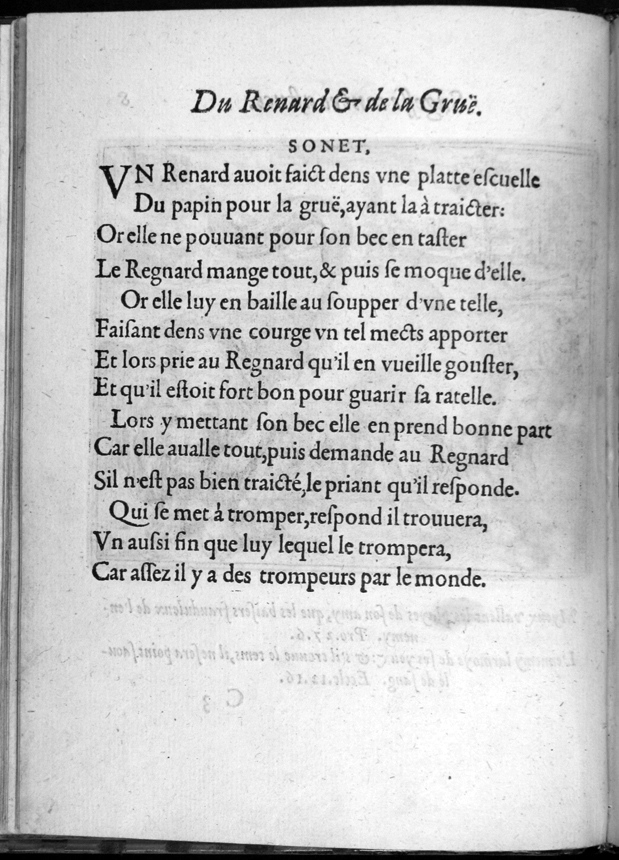 Du Renard & de la Gruë.
SONET,
VN Renard auoit faict dens vne platte eſcuelle
Du papin pour la gruë,ayant la à traicter:
Or elle ne pouuant pour ſon bec en taſter
Le Regnard mange tout,& puis ſe moque d'elle.
Or elle luy en baille au ſoupper d'vne telle,
Faiſant dens vne courge vn tel mects apporter
Et lors prie au Regnard qu'il en vueille gouſter,
Et qu'il eſtoit fort bon pour guarir ſa ratelle.
Lors y mettant ſon bec elle en prend bonne part
Car elle aualle tout,puis demande au Regnard
Sil n'eſt pas bien traicté,le priant qu'il reſponde.
Qui ſe met à tromper,reſpond il trouuera,
Vn auſsi fin que luy lequel le trompera,
Car aſſez il y a des trompeurs par le monde.